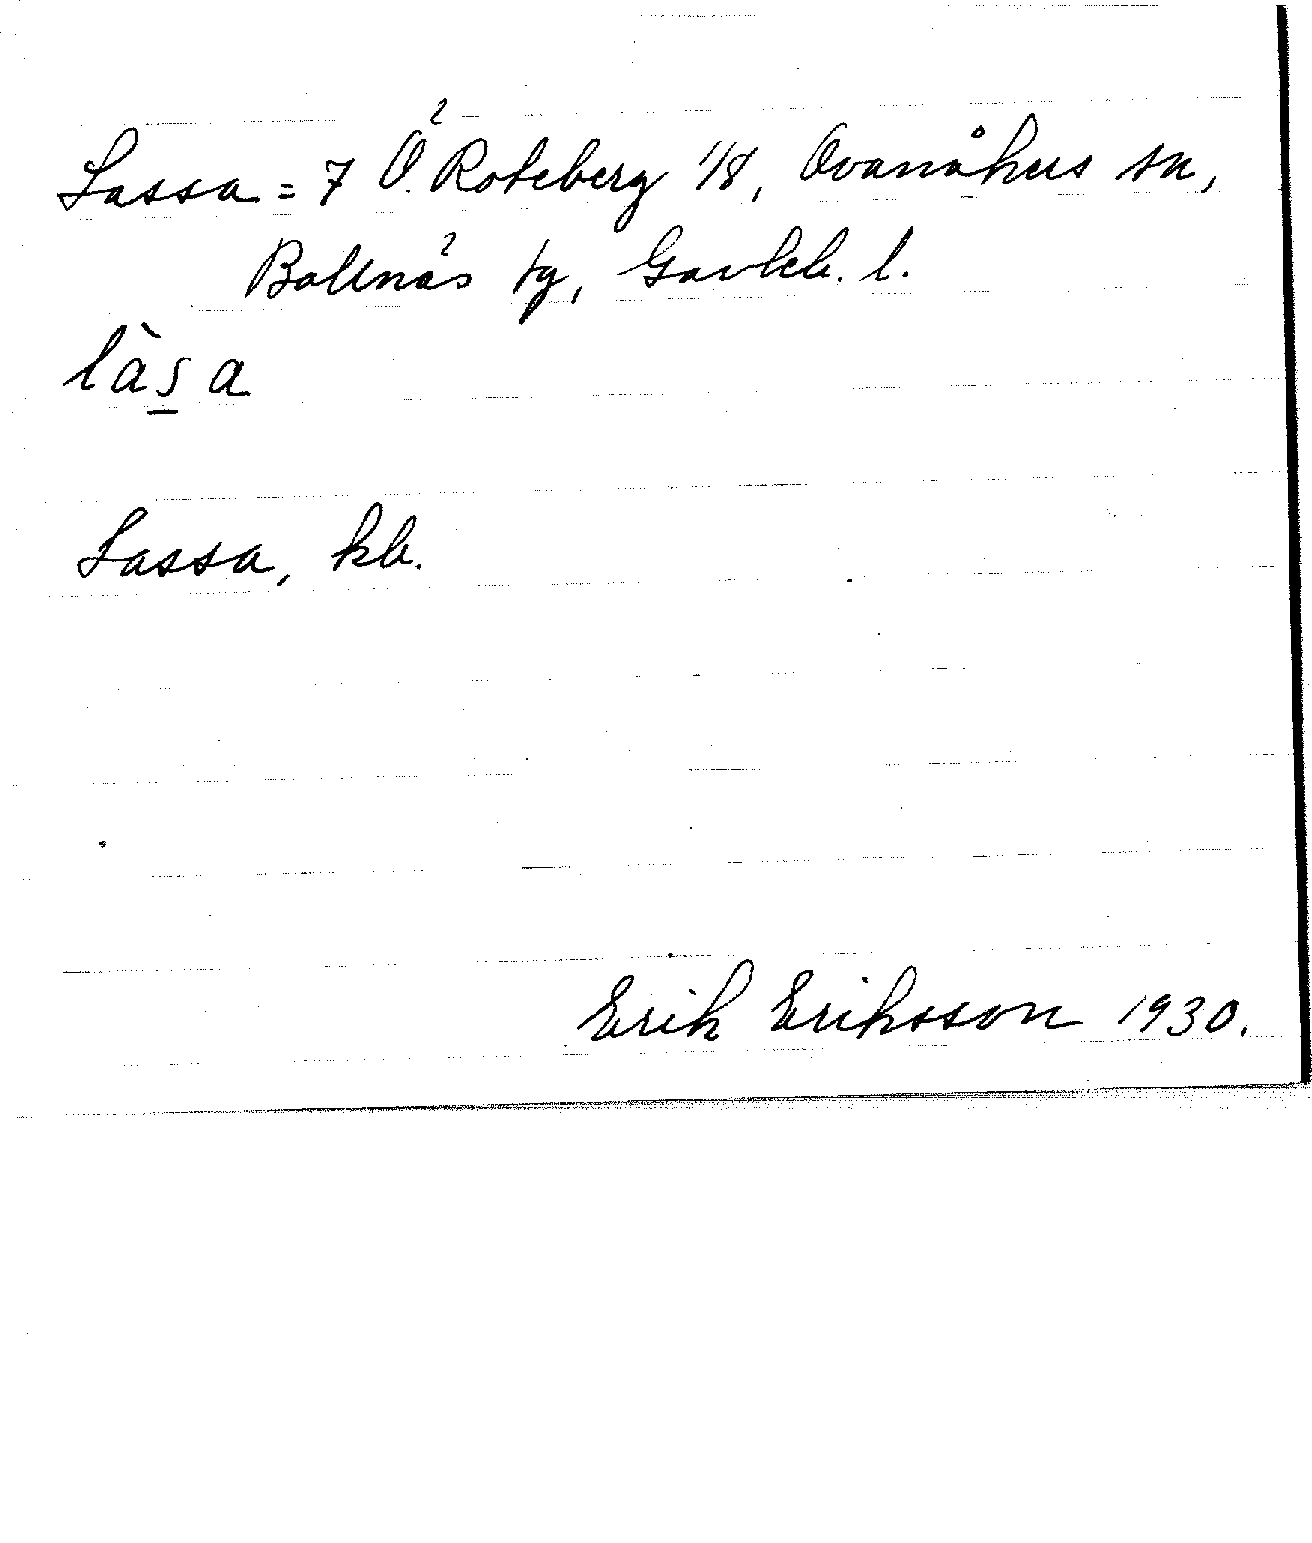 Lassa = 7 Ö. Roteberg 1/8, Ovanåkers sn,
Bollnäs tg, Gävleb. l.
làs̲a
Lassa, kb.
Erik Eriksson 1930.